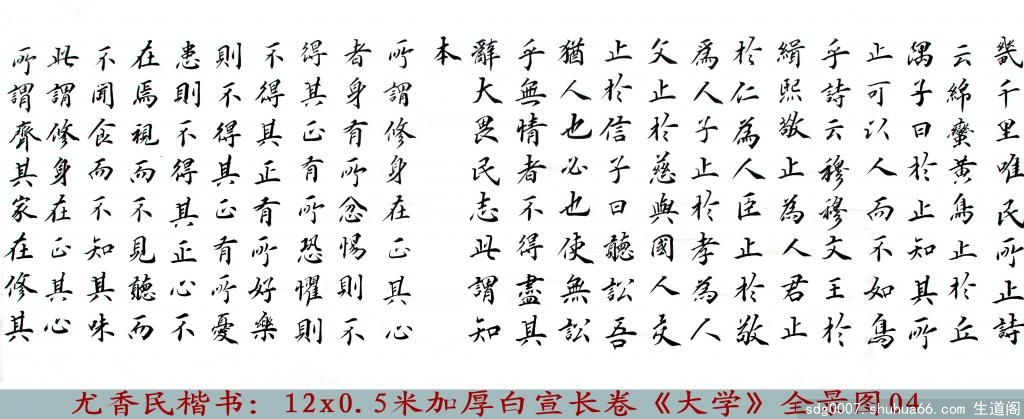 畿千里唯民所止詩
云綿蠻黃鳥止於丘
隅子曰於止知其所
止可以人而不如鳥
乎詩云穆穆文王於
緝熙敬止為人君止
於仁為人臣止於敬
為人子止於孝為人
父止於慈與國人交
止於信子曰聽訟吾
猶人也必也使無訟
乎無情者不得盡其
辭大畏民志此謂知
本
所謂修身在正其心
者身有所忿惕則不
得其正有所恐懼則
不得其正有所好樂
則不得其正有所憂
患則不得其正心不
在焉視而不見聽而
不聞食而不知其味
此謂修身在正其心
所謂齊其家在修其
尤香民楷书：12x0.5米加厚白宣长卷《大学》全景图04
sdg0007.shuhua66.com 生道阁